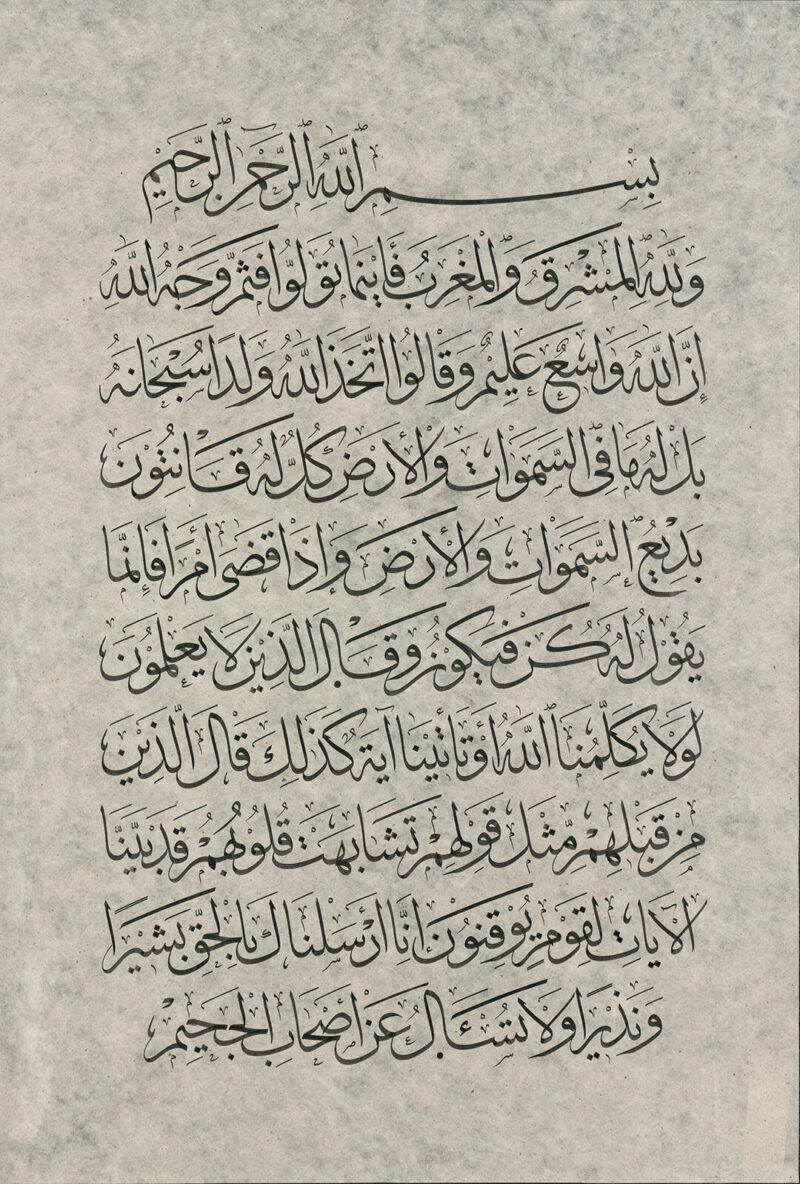 بِسْمِ ٱللَّهِ ٱلرَّحْمٰنِ ٱلرَّحِيمِ
وَلِلَّهِ الْمَشْرِقُ وَالْمَغْرِبُ فَأَيْنَمَا تُوَلُّوا فَثَمَّ وَجْهُ اللَّهِ
إِنَّ اللَّهَ وَاسِعٌ عَلِيْمٌ وَقَالُوا اتَّخَذَ اللَّهُ وَلَدًا سُبْحَانَهُ
بَلْ لَهُ مَا فِى السَّمَوَاتِ وَالْأَرْضِ كُلٌّ لَهُ قَانِتُوْنَ
بَدِيْعُ السَّمَوَاتِ وَالْأَرْضِ وَإِذَا قَضَى أَمْرًا فَإِنَّمَا
يَقُوْلُ لَهُ كُنْ فَيَكُوْنُ وَقَالَ الَّذِيْنَ لَا يَعْلَمُوْنَ
لَوْلَا يُكَلِّمُنَا ٱللَّهُ أَوْ تَأْتِيْنَا آيَةٌ كَذَلِكَ قَالَ الَّذِيْنَ
مِنْ قَبْلِهِمْ مِّثْلَ قَوْلِهِمْ تَشَابَهَتْ قُلُوْبُهُمْ قَدْ بَيَّنَّا
الْآيَاتِ لِقَوْمٍ يُوْقِنُوْنَ إِنَّا أَرْسَلْنَاكَ بِالْحَقِّ بَشِيْرًا
وَنَذِيْرًا وَلَا تُسْـَٔالُ عَنْ أَصْحَابِ الْجَحِيْمِ